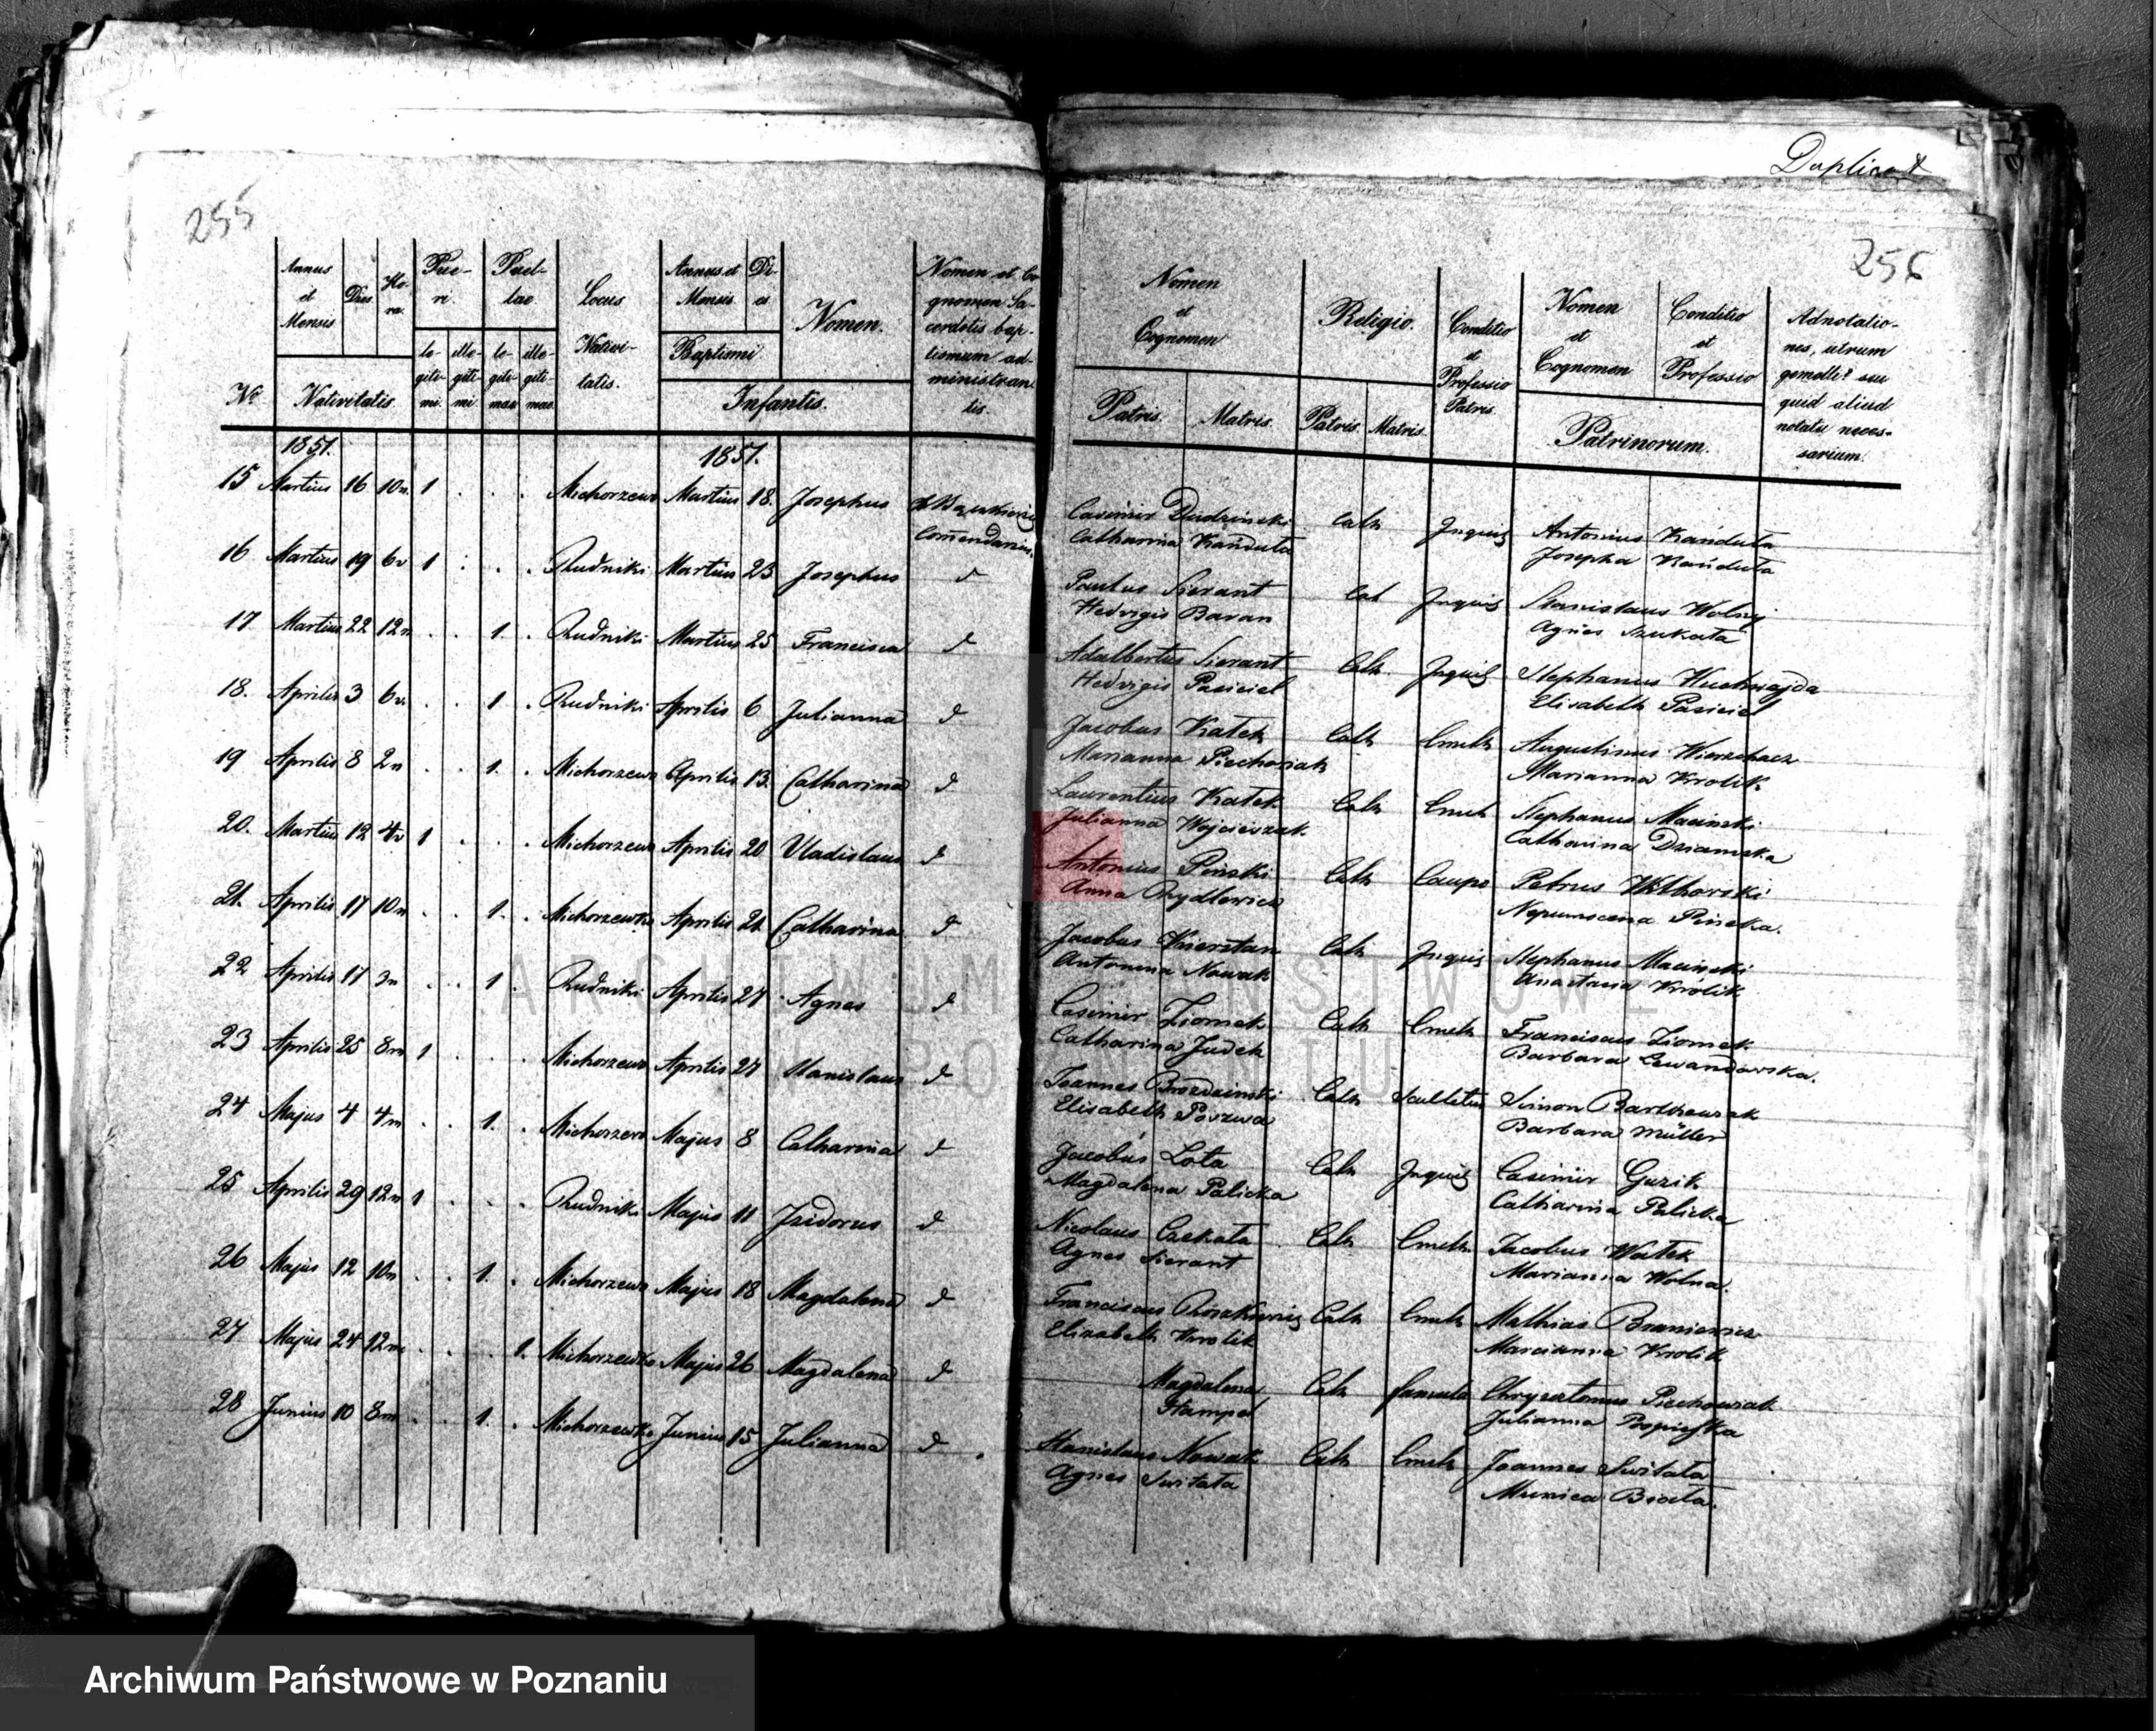 Duplicat
255
256
Annus et Mensis Dies Hora Pueri Puellae Locus Nativitatis. Annus et Mensis Dies Nomen. Nomen et Cognomen Sacerdotis baptismum administrantis
legitimi illegitimi legitimae illegitimae Baptismi
No Nativitatis Infantis.
Nomen et Cognomen Religio. Conditio et Professio Patris. Nomen et Cognomen Conditio et Professio Adnotationes, utrum gemelli? seu quid aliud notatu necessarium.
Patris. Matris. Patris. Matris. Patrinorum.
1851. 1851.
15 Martius 16 10n 1 Michorzewo Martius 18. Josephus Comendarius
16 Martius 19 6v 1 Rudniki Martius 23 Josephus d
17 Martius 22 12n 1. Rudniki Martius 25 Francisca d
18. Aprilis 3 6v 1 Rudniki Aprilis 6 Julianna d
19 Aprilis 8 2n 1. Michorzewo Aprilis 13. Catharina d
20. Martius 12 4v 1 Michorzewo Aprilis 20 Vladislaus d
21. Aprilis 17 10n 1. Michorzewko Aprilis 21 Catharina d
22 Aprilis 17 3n 1. Rudniki Aprilis 27 Agnes d
23 Aprilis 25 8m 1 Michorzewo Aprilis 27 Stanislaus d
24 Majus 4 4m 1. Michorzewo Majus 8 Catharina d
25 Aprilis 29 12n 1 Rudniki Majus 11 Isidorus d
26 Majus 12 10n 1. Michorzewo Majus 18 Magdalena d
27 Majus 24 12m 1. Michorzewko Majus 26 Magdalena d
28 Junius 10 8m 1. Michorzewko Junius 15 Julianna d
Casimir Dudzinski Cath Inquil Antonius Kańduta
Catharina Kańduta Josepha Kańduta
Paulus Sierant Cat Inquil Stanislaus Wolny
Hedvigis Baran Agnes Szukała
Adalbertus Sierant Cath Inquil Stephanus
Hedvigis Pasiciel Elisabeth Pasiciel
Jacobus Kałek Cath Cmeth Augustinus Wierzchacz
Marianna Piechowiak Marianna Krolik
Laurentius Kałek Cath Cmeth Stephanus Macinski
Julianna Wojcieszak Catharina Dziamska
Antonius Pinski Cath Caupo Petrus
Anna Rydlewicz Nepumocena Pinska.
Jacobus Kierstan Cath Inquil Stephanus Macinski
Antonina Nowak Anastasia Królik
Casimir Ziomek Cath Cmeth Franciscus Ziomek
Catharina Judek Barbara Lewandowska.
Joannes Brozdzinski Cath Scultetus Simon Barthowiak
Elisabeth Poszwa Barbara Müller
Jacobus Lota Cath Inquil Casimir Guzik
Magdalena Palicka Catharina Palicka
Nicolaus Czekała Cath Cmeth Jacobus Wałek
Agnes Sierant Marianna Wolna.
Franciscus Roszkiewicz Cath Cmeth Mathias Braniewicz
Elizabeth Krolik Marianna Krolik
Magdalena Cath famula Chrysostomus Piechowiak
Stampel Julianna
Stanislaus Nowak Cath Cmeth Joannes Switała
Agnes Switała Munica Biała.
ARCHIWUM PAŃSTWOWE
W POZNANIU
Archiwum Państwowe w Poznaniu